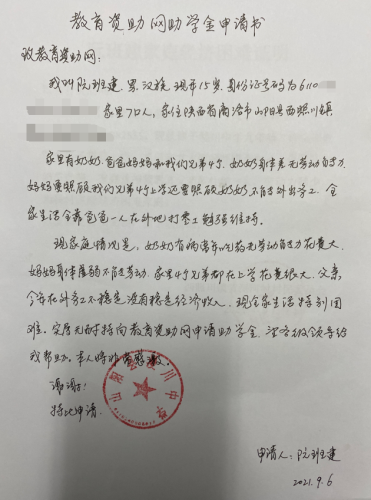 教育资助网助学金申请书
致教育资助网：
我叫阮班建，男，汉族，现年15岁，身份证号码为6110
家里7口人，家住陕西省商洛市山阳县西照川镇
家里有奶奶、爸爸妈妈和我们兄弟4个，奶奶身体差无劳动能力，
妈妈要照顾我们兄弟4个上学还要照顾奶奶不能去外出务工，全
家生活全靠爸爸一人在外地打零工勉强维持。
现家庭情况是，奶奶有病常年吃药无劳动能力花费大，
妈妈身体虚弱不能劳动，家里4个兄弟都在上学花费很大，父亲，
今年在外务工不稳定没有稳定经济收入，现全家生活特别困
难。实属无耐特向教育资助网申请助学金，望各级领导给
我帮助。本人将非常感激。
谢谢！
特此申请
山阳县 照川中学
申请人：阮班建
2021.9.6